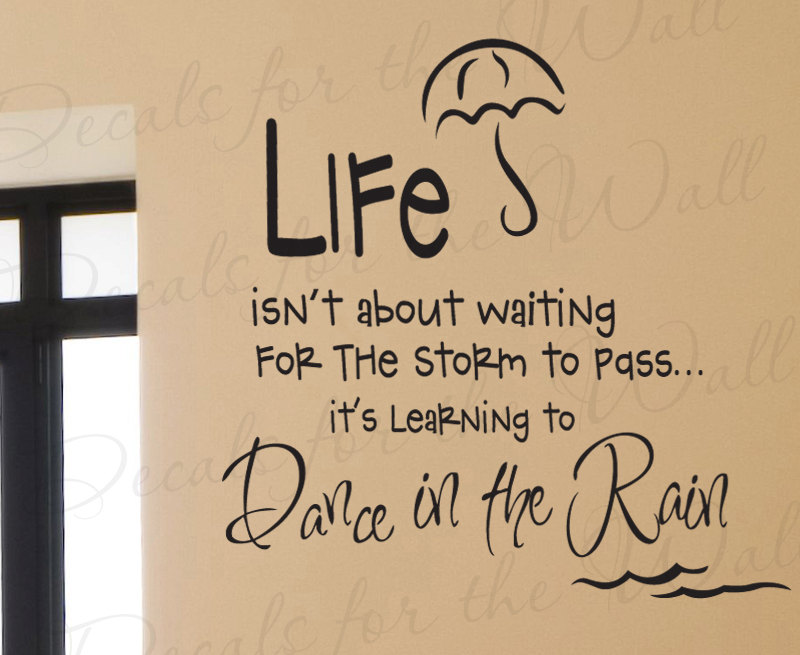 Life
isn't about waiting
for the storm to pass...
it's learning to
Dance in the Rain
Decals for the Wall
Decals for the Wall
Decals for the Wall
Decals for the Wall